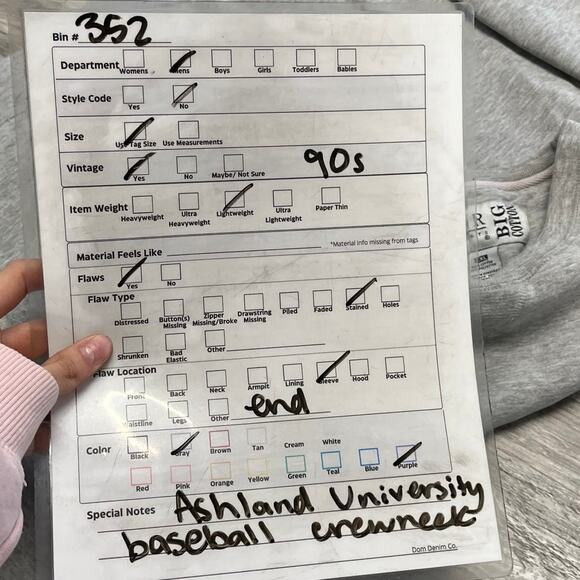 Bin # 352
Department Womens Mens Boys Girls Toddlers Babies
Style Code Yes No
Size Use Tag Size Use Measurements
Vintage Yes No Maybe/ Not Sure 90s
Item Weight Heavyweight Ultra Heavyweight Lightweight Ultra Lightweight Paper Thin
Material Feels Like *Material info missing from tags
Flaws Yes No
Flaw Type
Distressed Button(s) Missing Zipper Missing/Broke Drawstring Missing Piled Faded Stained Holes
Shrunken Bad Elastic Other
Flaw Location
Front Back Neck Armpit Lining Sleeve Hood Pocket
Waistline Legs Other end
Color Black Gray Brown Tan Cream White
Red Pink Orange Yellow Green Teal Blue Purple
Special Notes Ashland University
baseball crewneck
Dom Denim Co.
BIG
COTTON